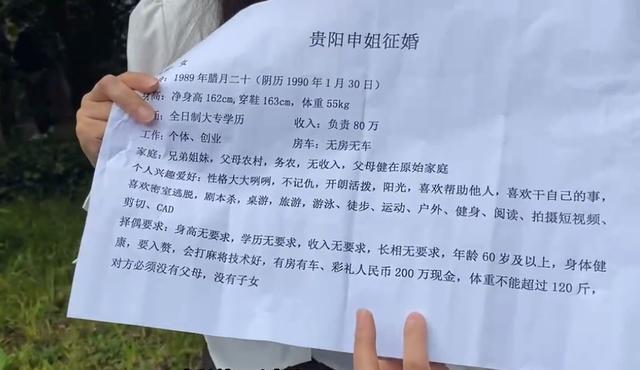 贵阳申姐征婚
女
：1989年腊月二十（阴历1990年1月30日）
身高：净身高162cm,穿鞋163cm，体重55kg
：全日制大专学历 收入：负责80万
工作：个体、创业 房车：无房无车
家庭：兄弟姐妹，父母农村，务农，无收入，父母健在原始家庭
个人兴趣爱好：性格大大咧咧，不记仇，开朗活泼，阳光，喜欢帮助他人，喜欢干自己的事，
喜欢密室逃脱，剧本杀，桌游，旅游，游泳、徒步、运动、户外、健身、阅读、拍摄短视频、
剪切、CAD
择偶要求：身高无要求，学历无要求，收入无要求，长相无要求，年龄60岁及以上，身体健
康，要入赘，会打麻将技术好，有房有车、彩礼人民币200万现金，体重不能超过120斤，
对方必须没有父母，没有子女